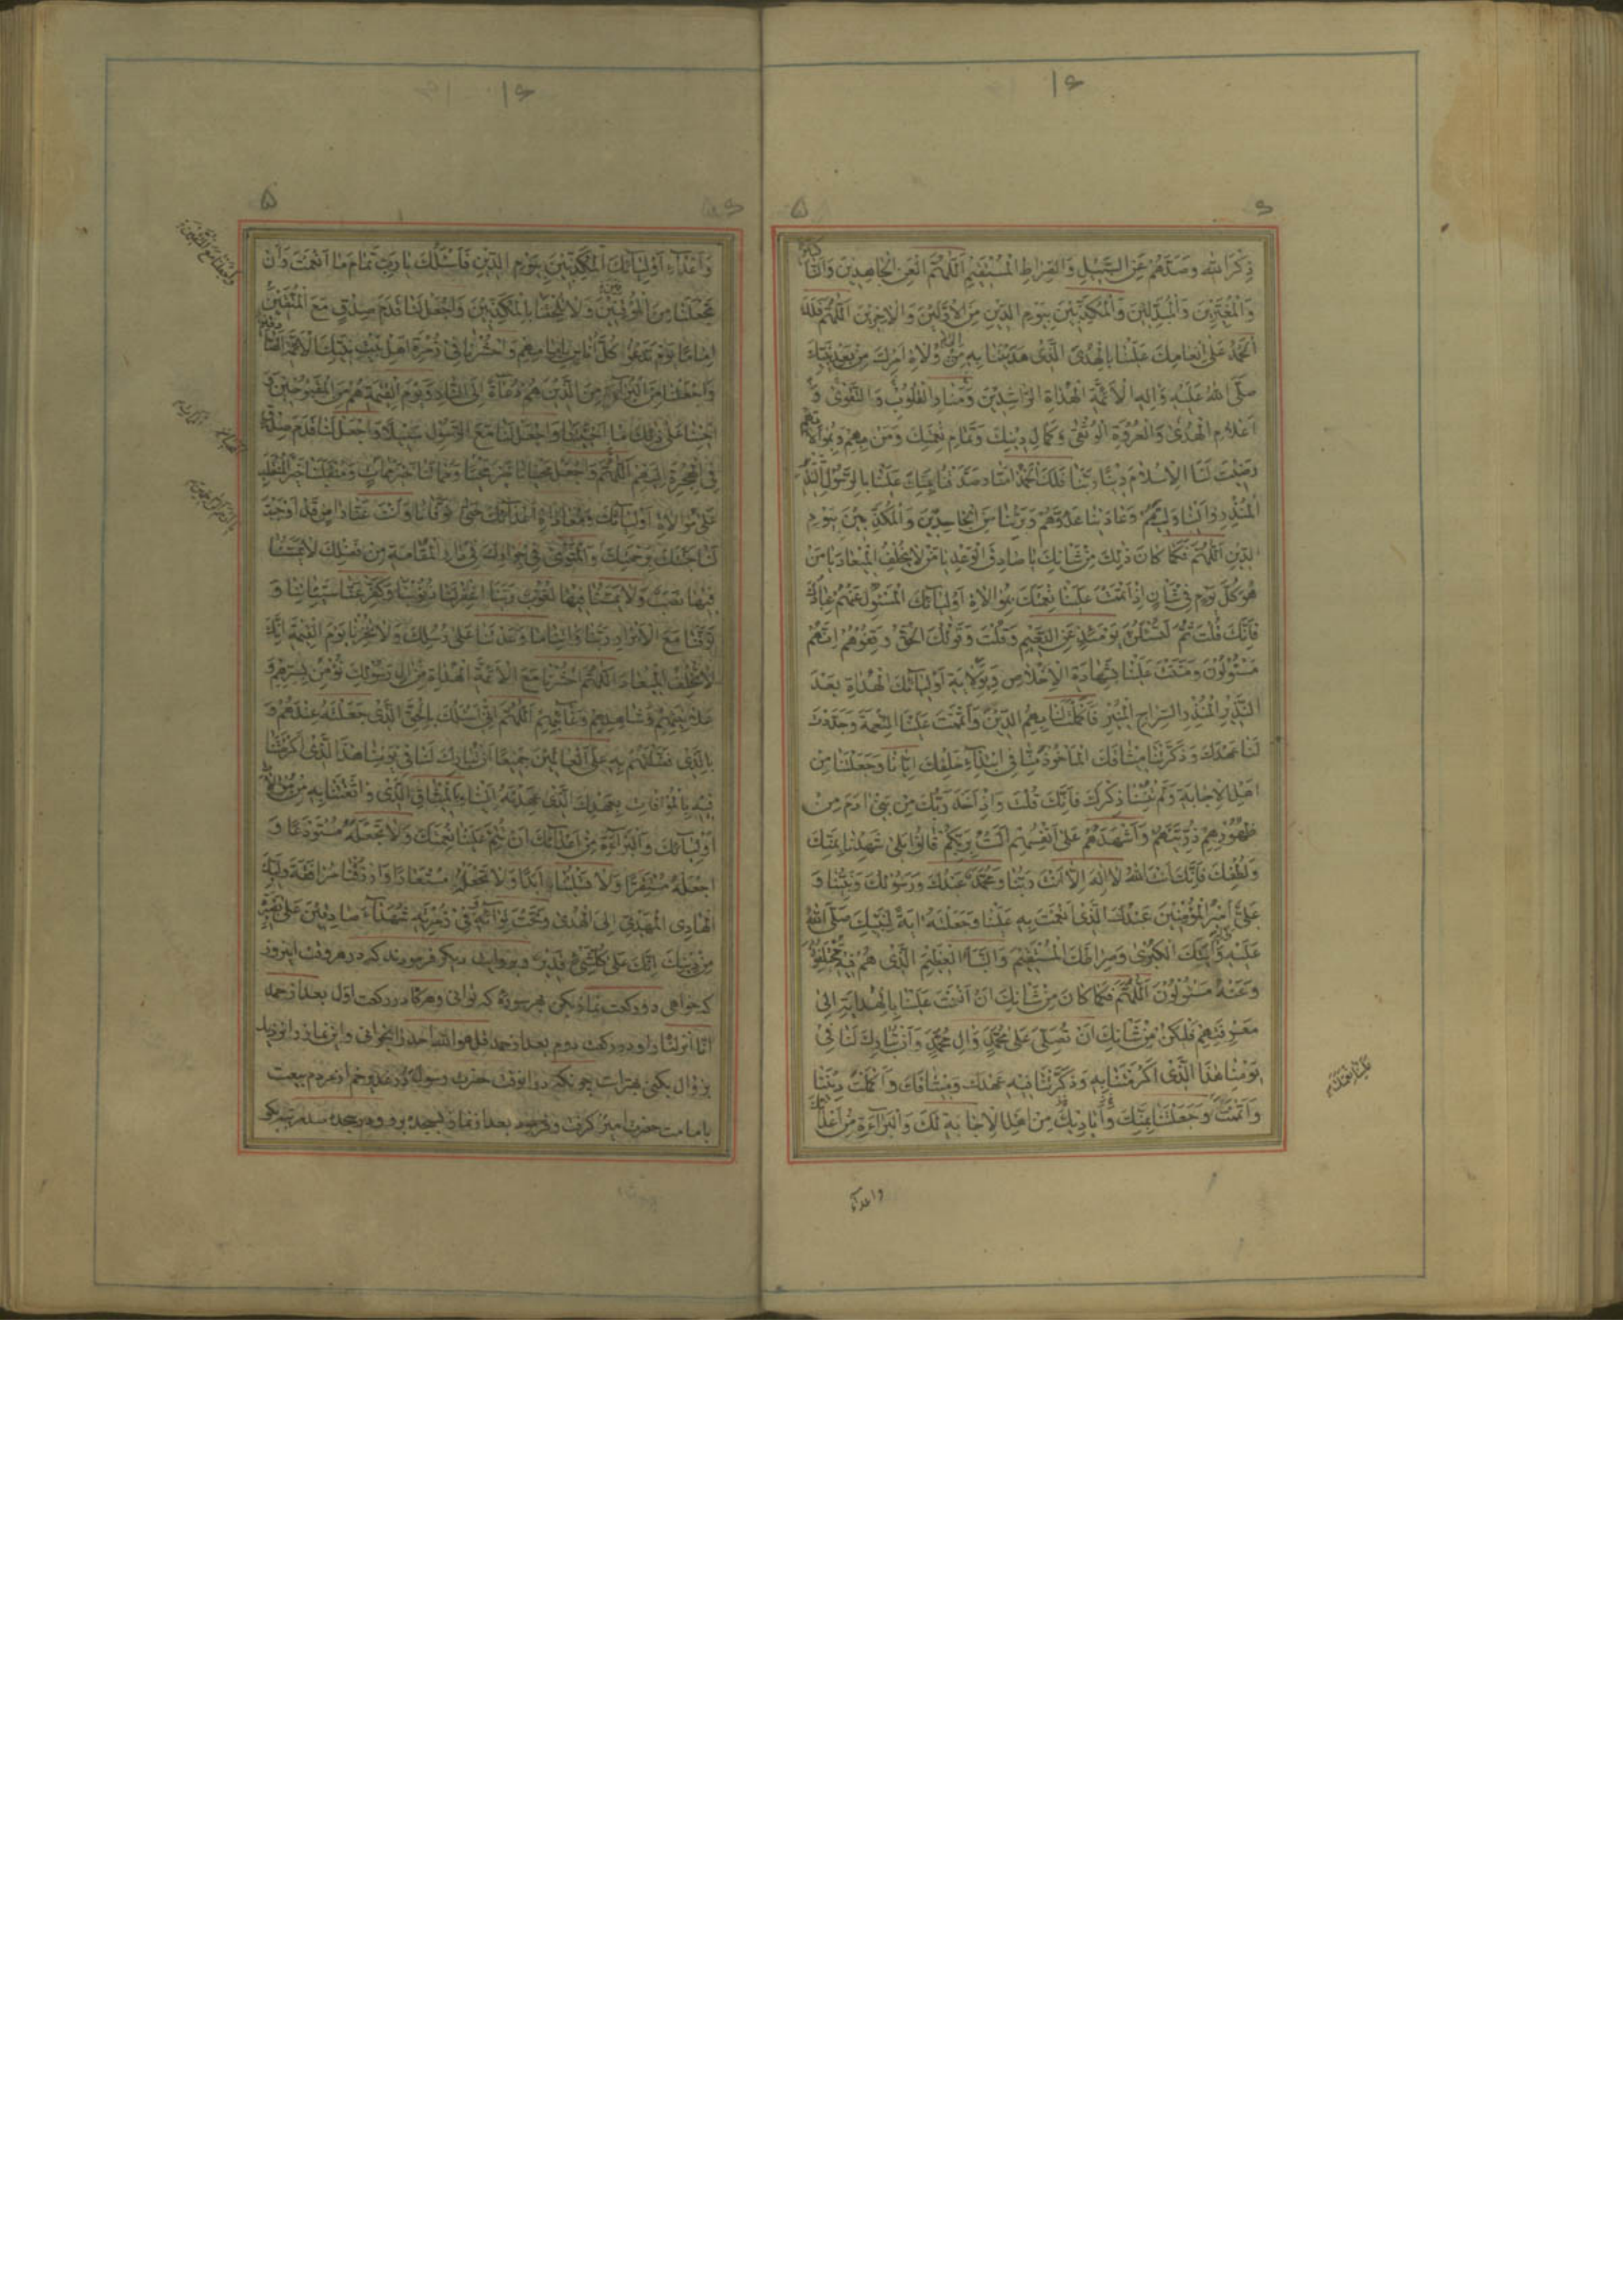 ذِكْرَ اللهِ وَصَدَّهُمْ عَنِ السَّبِيلِ وَالصِّرَاطِ الْمُسْتَقِيمِ اَللّٰهُمَّ الْعَنِ الْجَاحِدِينَ وَالنَّاكِثِينَ
وَالْمُغَيِّرِينَ وَالْمُبَدِّلِينَ وَالْمُكَذِّبِينَ بِيَوْمِ الدِّينِ مِنَ الْاَوَّلِينَ وَالْاٰخِرِينَ اَللّٰهُمَّ فَلَكَ
الْحَمْدُ عَلٰى اِنْعَامِكَ عَلَيْنَا بِالْهُدَى الَّذِى هَدَيْتَنَا بِهِ اِلٰى وُلَاةِ اَمْرِكَ مِنْ بَعْدِ نَبِيِّكَ
صَلَّى اللهُ عَلَيْهِ وَاٰلِهِ الْاَئِمَّةِ الْهُدَاةِ الرَّاشِدِينَ وَمَنَارِ الْقُلُوبِ وَالتَّقْوٰى وَ
اَعْلَامِ الْهُدٰى وَالْعُرْوَةِ الْوُثْقٰى وَكَمَالِ دِينِكَ وَتَمَامِ نِعْمَتِكَ وَمَنْ بِهِمْ وَبِمُوَالَاتِهِمْ
رَضِيتَ لَنَا الْاِسْلَامَ دِينًا رَبَّنَا فَلَكَ الْحَمْدُ اٰمَنَّا وَصَدَّقْنَا بِمَنِّكَ عَلَيْنَا بِالرَّسُولِ النَّذِيرِ
الْمُنْذِرِ وَالَيْنَا وَلِيَّهُمْ وَعَادَيْنَا عَدُوَّهُمْ وَبَرِئْنَا مِنَ الْجَاحِدِينَ وَالْمُكَذِّبِينَ بِيَوْمِ
الدِّينِ اَللّٰهُمَّ فَكَمَا كَانَ ذٰلِكَ مِنْ شَاْنِكَ يَا صَادِقَ الْوَعْدِ يَا مَنْ لَا يُخْلِفُ الْمِيعَادَ يَا مَنْ
هُوَ كُلَّ يَوْمٍ فِى شَاْنٍ اِذْ اَتْمَمْتَ عَلَيْنَا نِعْمَتَكَ بِمُوَالَاةِ اَوْلِيَائِكَ الْمَسْئُولِ عَنْهُمْ عِبَادُكَ
فَاِنَّكَ قُلْتَ ثُمَّ لَتُسْئَلُنَّ يَوْمَئِذٍ عَنِ النَّعِيمِ وَقُلْتَ وَقَوْلُكَ الْحَقُّ وَقِفُوهُمْ اِنَّهُمْ
مَسْئُولُونَ وَمَنَنْتَ عَلَيْنَا بِشَهَادَةِ الْاِخْلَاصِ وَبِوَلَايَةِ اَوْلِيَائِكَ الْهُدَاةِ بَعْدَ
النَّذِيرِ الْمُنْذِرِ السِّرَاجِ الْمُنِيرِ فَاَكْمَلْتَ لَنَا بِهِمُ الدِّينَ وَاَتْمَمْتَ عَلَيْنَا النِّعْمَةَ وَجَدَّدْتَ
لَنَا عَهْدَكَ وَذَكَّرْتَنَا مِيثَاقَكَ الْمَأْخُوذَ مِنَّا فِى ابْتِدَاءِ خَلْقِكَ اِيَّانَا وَجَعَلْتَنَا مِنْ
اَهْلِ الْاِجَابَةِ وَلَمْ تُنْسِنَا ذِكْرَكَ فَاِنَّكَ قُلْتَ وَاِذْ اَخَذَ رَبُّكَ مِنْ بَنِى اٰدَمَ مِنْ
ظُهُورِهِمْ ذُرِّيَّتَهُمْ وَاَشْهَدَهُمْ عَلٰى اَنْفُسِهِمْ اَلَسْتُ بِرَبِّكُمْ قَالُوا بَلٰى شَهِدْنَا بِمَنِّكَ
وَلُطْفِكَ فَاِنَّكَ اَنْتَ اللهُ لَا اِلٰهَ اِلَّا اَنْتَ رَبُّنَا وَمُحَمَّدٌ عَبْدُكَ وَرَسُولُكَ وَنَبِيُّنَا وَ
عَلِىٌّ اَمِيرُ الْمُؤْمِنِينَ عَبْدُكَ الَّذِى اَنْعَمْتَ بِهِ عَلَيْنَا وَجَعَلْتَهُ اٰيَةً لِنَبِيِّكَ صَلَّى اللهُ
عَلَيْهِ وَاٰلِهِ وَاٰيَتَكَ الْكُبْرٰى وَصِرَاطَكَ الْمُسْتَقِيمَ وَالنَّبَاَ الْعَظِيمَ الَّذِى هُمْ فِيهِ مُخْتَلِفُونَ
وَعَنْهُ مَسْئُولُونَ اَللّٰهُمَّ فَكَمَا كَانَ مِنْ شَاْنِكَ اَنْ اَنْعَمْتَ عَلَيْنَا بِالْهِدَايَةِ اِلٰى
مَعْرِفَتِهِمْ فَلْيَكُنْ مِنْ شَاْنِكَ اَنْ تُصَلِّىَ عَلٰى مُحَمَّدٍ وَاٰلِ مُحَمَّدٍ وَاَنْ تُبَارِكَ لَنَا فِى
يَوْمِنَا هٰذَا الَّذِى اَكْرَمْتَنَا بِهِ وَذَكَّرْتَنَا فِيهِ عَهْدَكَ وَمِيثَاقَكَ وَاَكْمَلْتَ دِينَنَا
وَاَتْمَمْتَ وَجَعَلْتَنَا بِمَنِّكَ مِنْ اَهْلِ الْاِجَابَةِ لَكَ وَالْبَرَاءَةِ مِنْ اَعْدَائِكَ
واعداء
۵
وَاَعْدَاءِ اَوْلِيَائِكَ الْمُكَذِّبِينَ بِيَوْمِ الدِّينِ فَاَسْئَلُكَ يَا رَبِّ تَمَامَ مَا اَنْعَمْتَ وَاَنْ
تَجْعَلَنَا مِنَ الْمُوقِنِينَ وَلَا تُلْحِقْنَا بِالْمُكَذِّبِينَ وَاجْعَلْ لَنَا قَدَمَ صِدْقٍ مَعَ الْمُتَّقِينَ
اِمَامًا يَوْمَ تَدْعُو كُلَّ اُنَاسٍ بِاِمَامِهِمْ وَاحْشُرْنَا فِى زُمْرَةِ اَهْلِ بَيْتِ نَبِيِّكَ الْاَئِمَّةِ
وَاجْعَلْنَا مِنَ الْبُرَاءِ مِنَ الَّذِينَ هُمْ دُعَاةٌ اِلَى النَّارِ وَيَوْمَ الْقِيٰمَةِ هُمْ مِنَ الْمَقْبُوحِينَ وَ
اَحْيِنَا عَلٰى ذٰلِكَ مَا اَحْيَيْتَنَا وَاجْعَلْ لَنَا مَعَ الرَّسُولِ سَبِيلًا وَاجْعَلْ لَنَا قَدَمَ صِدْقٍ
فِى الْهِجْرَةِ اِلَيْهِمْ اَللّٰهُمَّ وَاجْعَلْ مَحْيَانَا خَيْرَ مَحْيًا وَمَمَاتَنَا خَيْرَ مَمَاتٍ وَمُنْقَلَبَنَا خَيْرَ الْمُنْقَلَبِ
عَلٰى مُوَالَاةِ اَوْلِيَائِكَ وَمُعَادَاةِ اَعْدَائِكَ حَتّٰى تَوَفَّانَا وَاَنْتَ عَنَّا رَاضٍ قَدْ اَوْجَبْتَ
لَنَا جَنَّتَكَ بِرَحْمَتِكَ وَالْمَثْوٰى فِى جِوَارِكَ فِى دَارِ الْمُقَامَةِ مِنْ فَضْلِكَ لَا يَمَسُّنَا
فِيهَا نَصَبٌ وَلَا يَمَسُّنَا فِيهَا لُغُوبٌ رَبَّنَا اغْفِرْ لَنَا ذُنُوبَنَا وَكَفِّرْ عَنَّا سَيِّئَاتِنَا وَ
تَوَفَّنَا مَعَ الْاَبْرَارِ رَبَّنَا وَاٰتِنَا مَا وَعَدْتَنَا عَلٰى رُسُلِكَ وَلَا تُخْزِنَا يَوْمَ الْقِيٰمَةِ اِنَّكَ
لَا تُخْلِفُ الْمِيعَادَ اَللّٰهُمَّ احْشُرْنَا مَعَ الْاَئِمَّةِ الْهُدَاةِ مِنْ اٰلِ رَسُولِكَ نُؤْمِنُ بِسِرِّهِمْ وَ
عَلَانِيَتِهِمْ وَشَاهِدِهِمْ وَغَائِبِهِمْ اَللّٰهُمَّ اِنِّى اَسْئَلُكَ بِالْحَقِّ الَّذِى جَعَلْتَهُ عِنْدَهُمْ وَ
بِالَّذِى فَضَّلْتَهُمْ بِهِ عَلَى الْعَالَمِينَ جَمِيعًا اَنْ تُبَارِكَ لَنَا فِى يَوْمِنَا هٰذَا الَّذِى اَكْرَمْتَنَا
فِيهِ بِالْمُوَافَاتِ بِعَهْدِكَ الَّذِى عَهِدْتَهُ اِلَيْنَا وَالْمِيثَاقِ الَّذِى وَاثَقْتَنَا بِهِ مِنْ مُوَالَاةِ
اَوْلِيَائِكَ وَالْبَرَاءَةِ مِنْ اَعْدَائِكَ اَنْ تُتِمَّ عَلَيْنَا نِعْمَتَكَ وَلَا تَجْعَلَهُ مُسْتَوْدَعًا وَ
اجْعَلْهُ مُسْتَقَرًّا وَلَا تَسْلُبْنَاهُ اَبَدًا وَلَا تَجْعَلْهُ مُسْتَعَارًا وَارْزُقْنَا مُرَافَقَةَ وَلِيِّكَ
الْهَادِى الْمَهْدِىِّ اِلَى الْهُدٰى وَتَحْتَ لِوَائِهِ وَفِى زُمْرَتِهِ شُهَدَاءَ صَادِقِينَ عَلٰى بَصِيرَةٍ
مِنْ دِينِكَ اِنَّكَ عَلٰى كُلِّ شَىْءٍ قَدِيرٌ و بروایت دیگر فرمودند که در هر وقت اینروز
که خواهی دو رکعت نماز بکن بهر سوره که توانی و هرگاه در رکعت اول بعد از حمد
انا انزلنا و در رکعت دوم بعد از حمد قل هو الله احد را بخوانی و این نماز را نزدیک
بزوال بکنی بهتر است چونکه در اینوقت حضرت رسول در غدیر خم از مردم بیعت
بامامت حضرت امیر گرفت بعد از نماز بسجده برو و در سجده صد مرتبه بگو